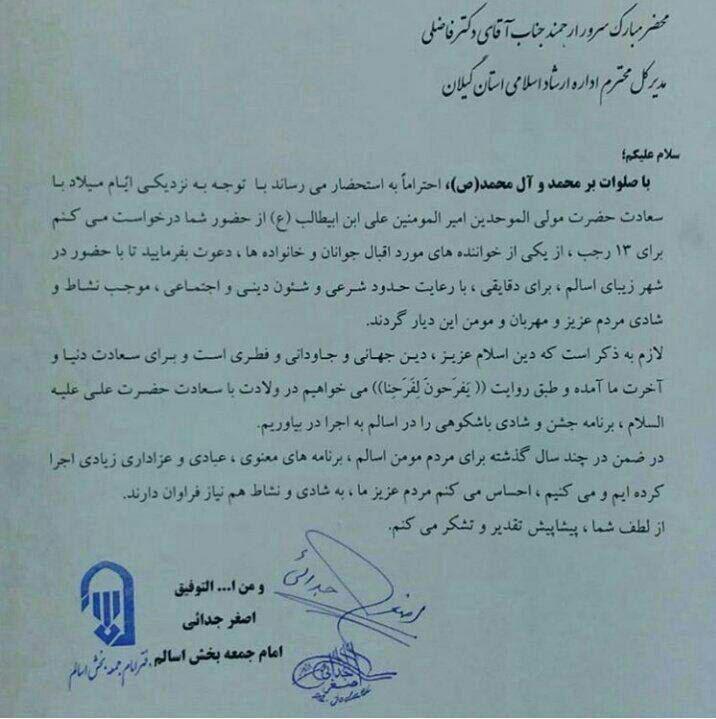 محضر مبارک سرور ارجمند جناب آقای دکتر فاضلی
مدیر کل محترم اداره ارشاد اسلامی استان گیلان
سلام علیکم؛
با صلوات بر محمد و آل محمد(ص)، احتراماً به استحضار می رساند با توجه به نزدیکی ایّام میلاد با
سعادت حضرت مولی الموحدین امیر المومنین علی ابن ابیطالب (ع) از حضور شما درخواست می کنم
برای ۱۳ رجب ، از یکی از خواننده های مورد اقبال جوانان و خانواده ها ، دعوت بفرمایید تا با حضور در
شهر زیبای اسالم ، برای دقایقی ، با رعایت حدود شرعی و شئون دینی و اجتماعی ، موجب نشاط و
شادی مردم عزیز و مهربان و مومن این دیار گردند.
لازم به ذکر است که دین اسلام عزیز ، دین جهانی و جاودانی و فطری است و برای سعادت دنیا و
آخرت ما آمده و طبق روایت (( یَفرَحونَ لِفَرَحِنا)) می خواهیم در ولادت با سعادت حضرت علی علیه
السلام ، برنامه جشن و شادی باشکوهی را در اسالم به اجرا در بیاوریم.
در ضمن در چند سال گذشته برای مردم مومن اسالم ، برنامه های معنوی ، عبادی و عزاداری زیادی اجرا
کرده ایم و می کنیم ، احساس می کنم مردم عزیز ما ، به شادی و نشاط هم نیاز فراوان دارند.
از لطف شما ، پیشاپیش تقدیر و تشکر می کنم.
و من ا... التوفیق
اصغر جدائی
امام جمعه بخش اسالم
اصغر جدائی
دفتر امام جمعه بخش اسالم
جدائی
اصغر